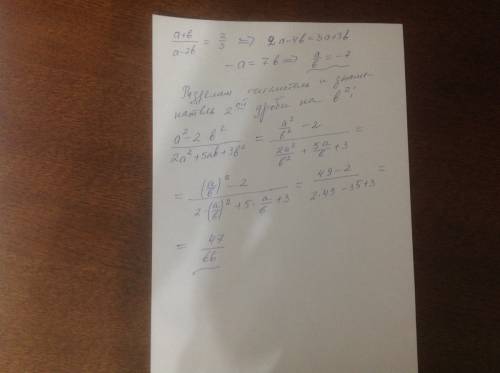 (a+b)/(a-2b) = 2/3 => 2a-4b=3a+3b
-a=7b => a/b = -7
Разделим числитель и знаме-
натель 2ой дроби на b²:
(a²-2b²)/(2a²+5ab+3b²) = (a²/b² -2)/(2a²/b² + 5a/b +3) =
= ((a/b)²-2)/(2·(a/b)²+5·a/b+3) = (49-2)/(2·49-35+3) =
= 47/66